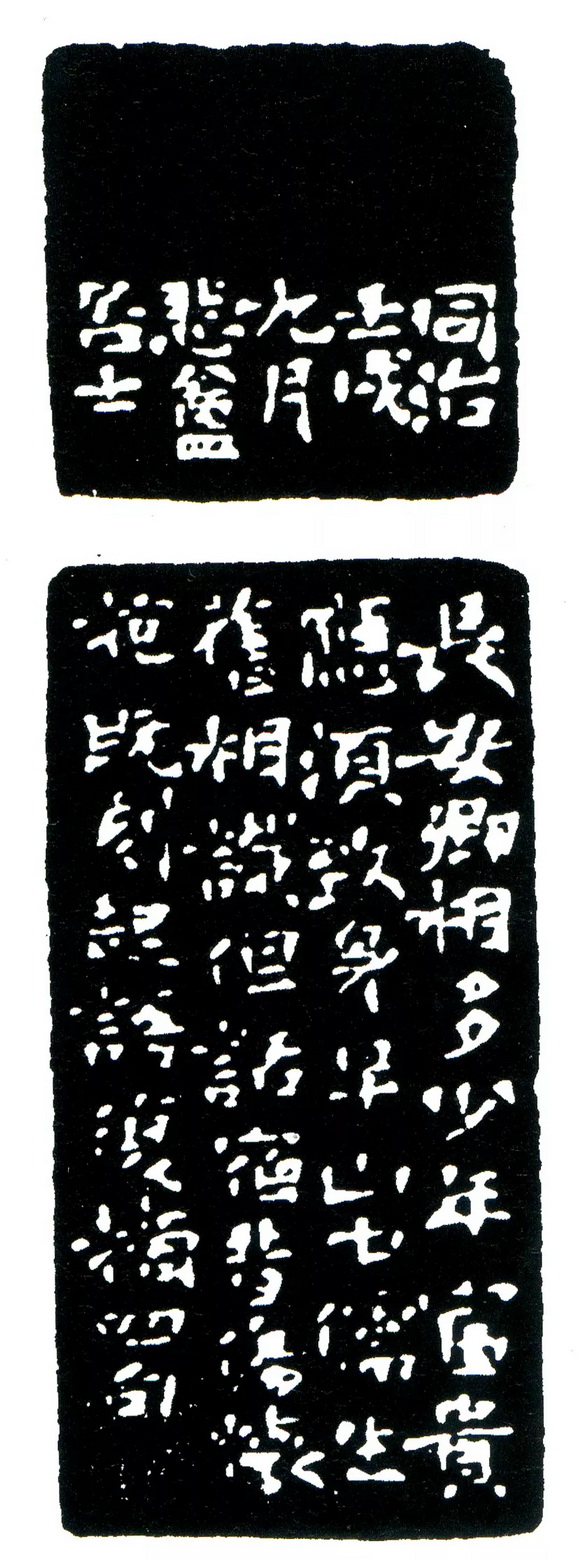 同治
壬戌
九月
悲盦
居士
長安卿相多少年富貴
應須致身早山中儒生
舊相識但話宿昔傷懷
抱既刻起語復摘四句